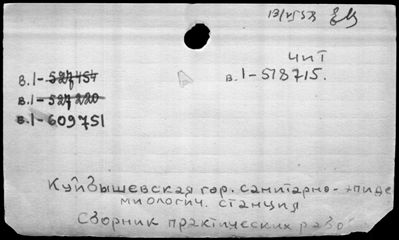 13/VI 53
чит
в.1-527454
в.1-518715.
в.1-527220
в.1-609751
Куйбышевская гор. санитарно-эпиде
миологич. станция
Сборник практических рабо